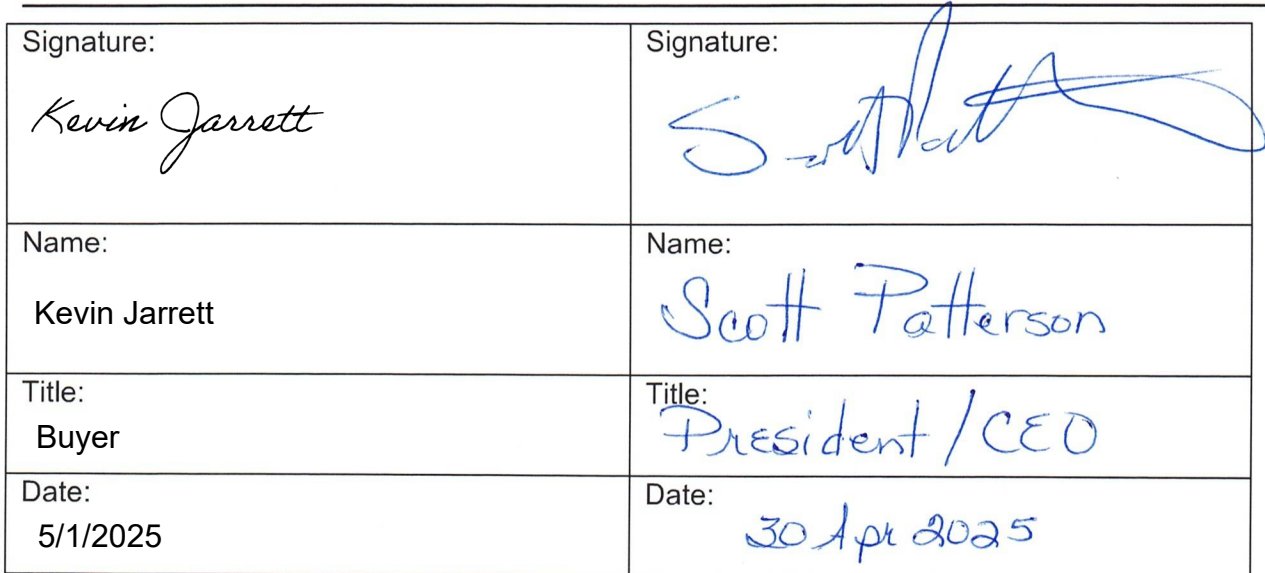 Signature:
Kevin Jarrett
Signature:
Scott Patt
Name:
Kevin Jarrett
Name:
Scott Patterson
Title:
Buyer
Title:
President / CEO
Date:
5/1/2025
Date:
30 Apr 2025